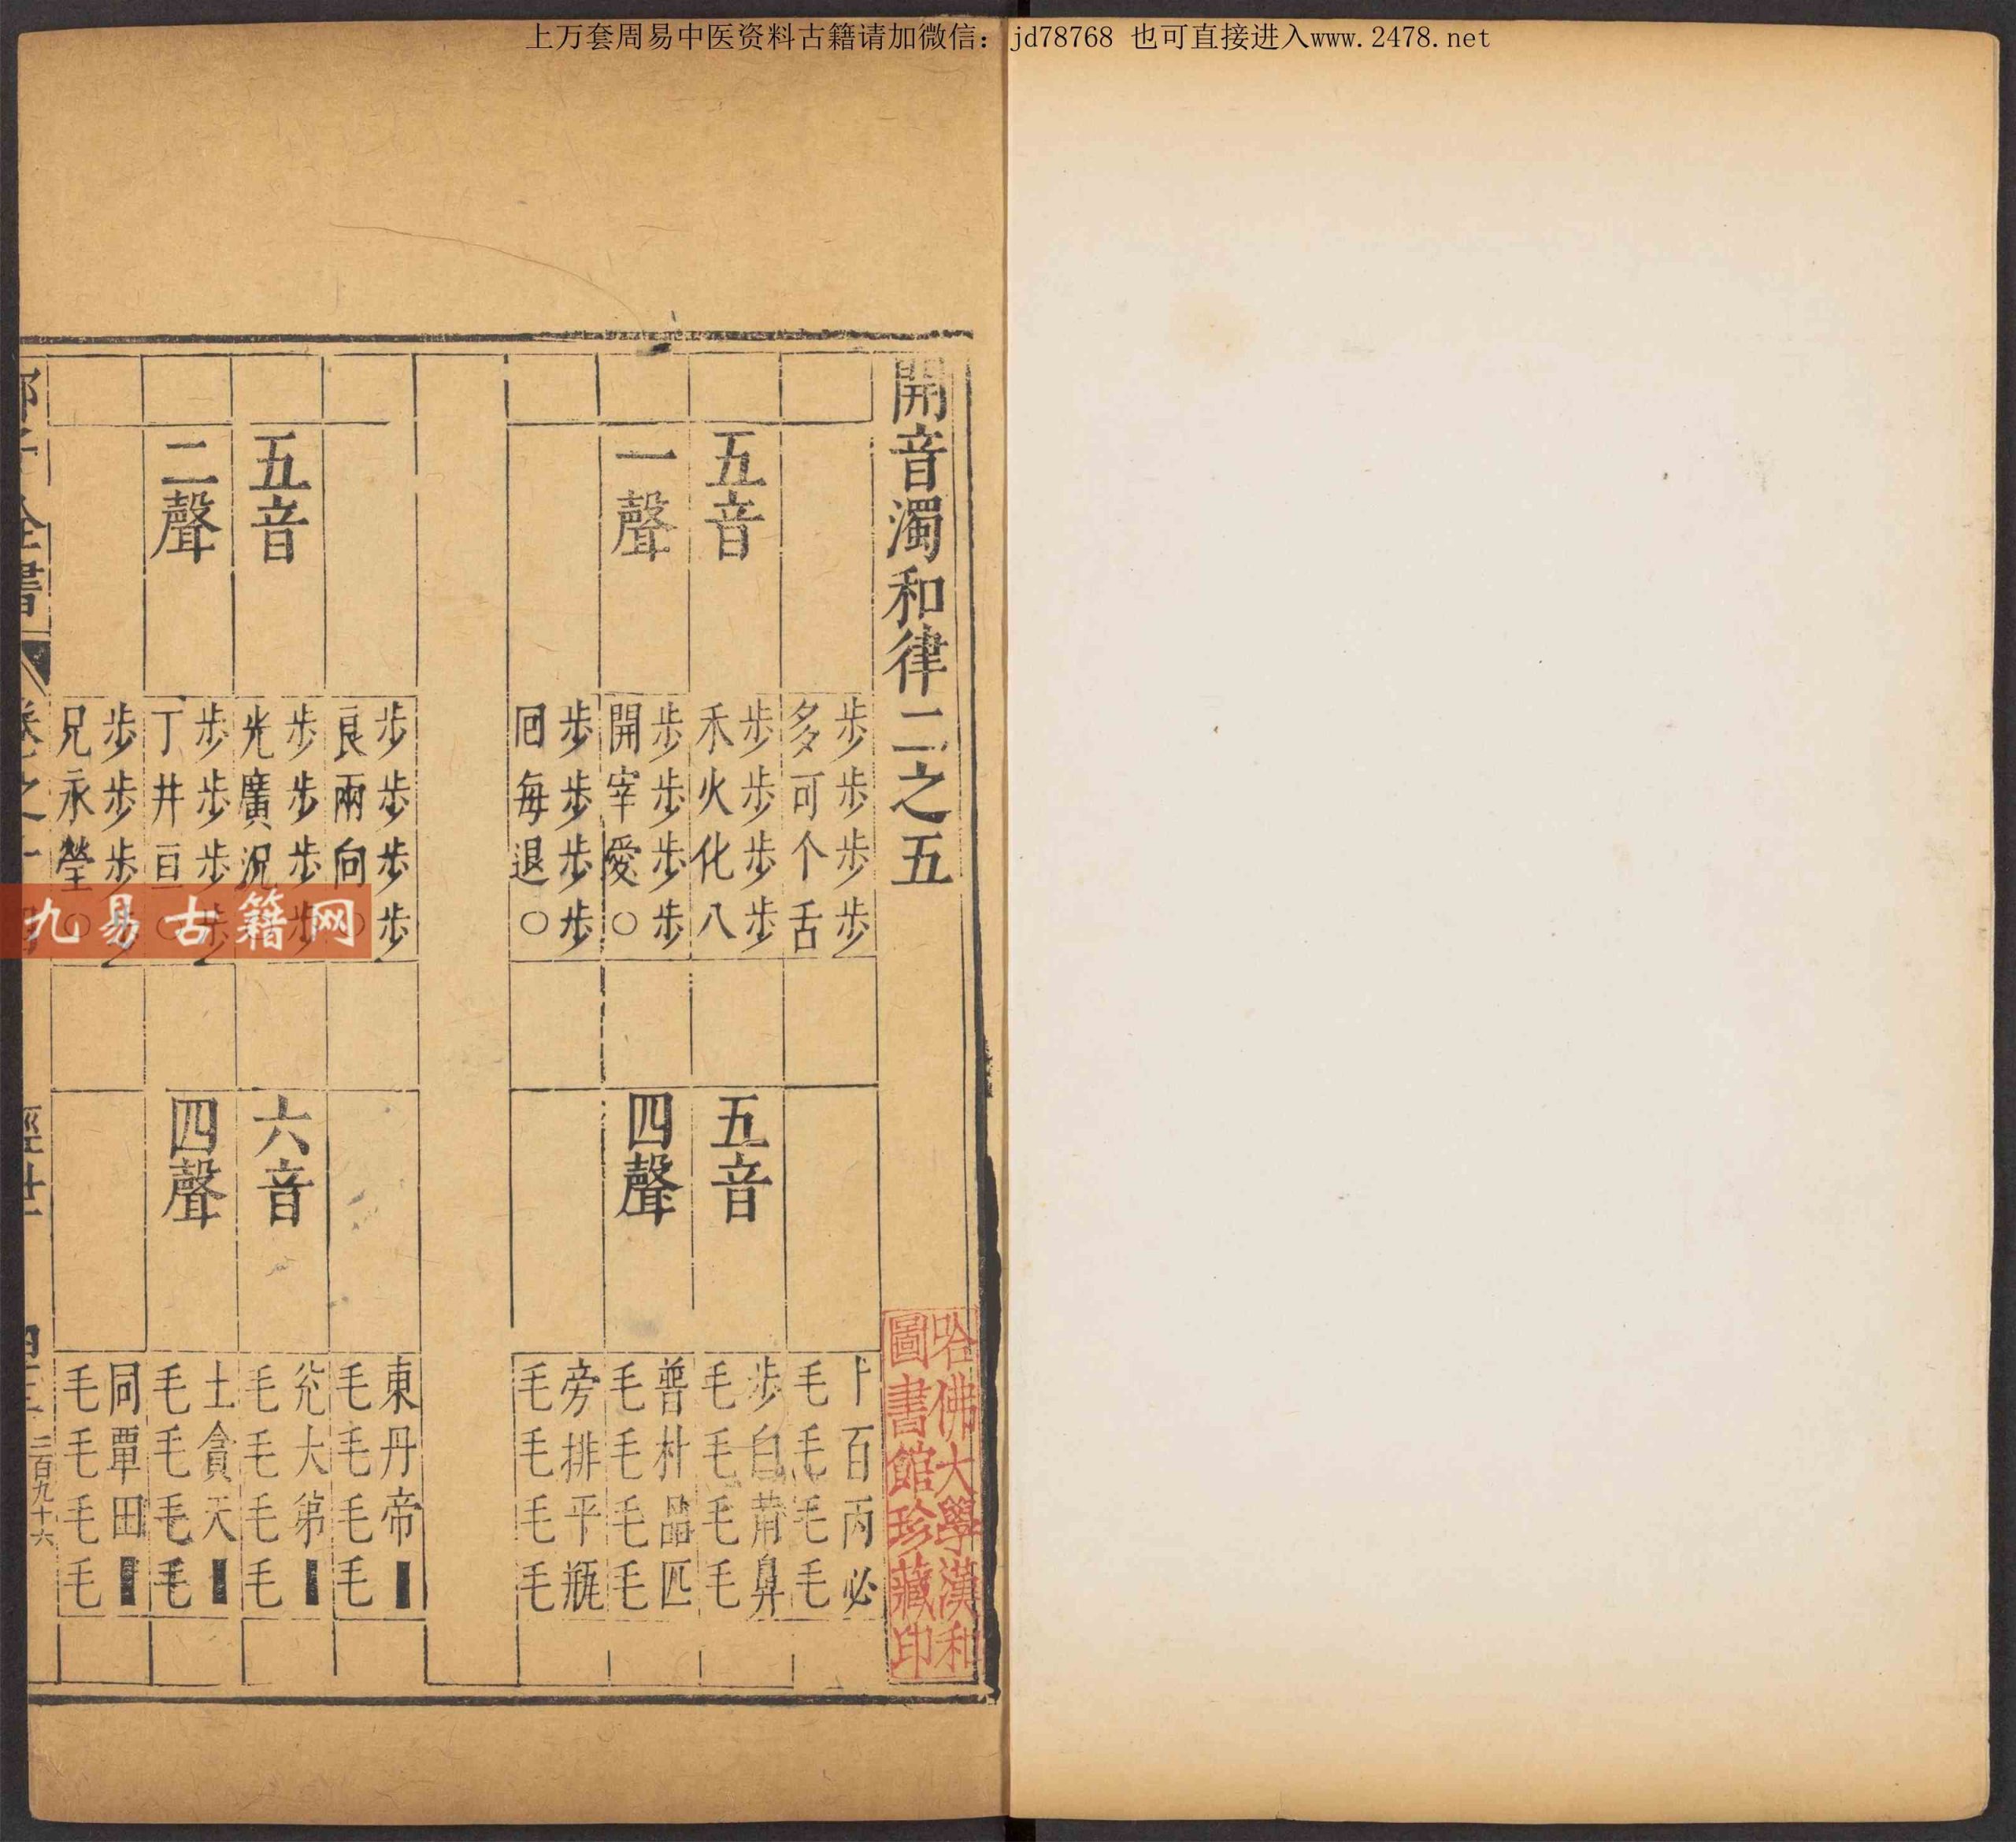 上万套周易中医资料古籍请加微信：jd78768 也可直接进入www.2478.net
開音濁和律二之五
五音
一聲
步步步步
多可个舌
步步步步
禾火化八
步步步步
開宰愛○
步步步步
回每退○
五音
四聲
卜百丙必
毛毛毛毛
步白荊鼻
毛毛毛毛
普朴品匹
毛毛毛毛
旁排平瓶
毛毛毛毛
五音
二聲
步步步步
良兩向○
步步步步
光廣況
步步步步
丁井亘○
步步步步
兄永瑩○
六音
四聲
東丹帝■
毛毛毛毛
兊大第■
毛毛毛毛
土貪天■
毛毛毛毛
同覃田■
毛毛毛毛
全書
經世
二百九十六
哈佛大學漢和
圖書館珍藏印
九易古籍网